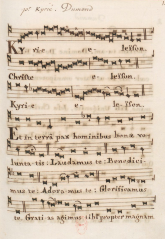 Kyrie e leison.
Christe e leison.
Kyrie e leison.
Et in terra pax hominibus bonæ vo
luntatis: Laudamus te: Benedici
mus te: Adoramus te: Glorificamus
te. Gratias agimus tibi propter magnam